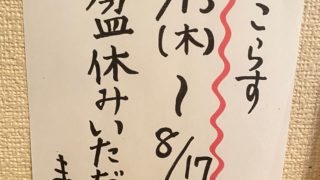 こらす
/15(木)〜8/17
盆休みいただ
ま